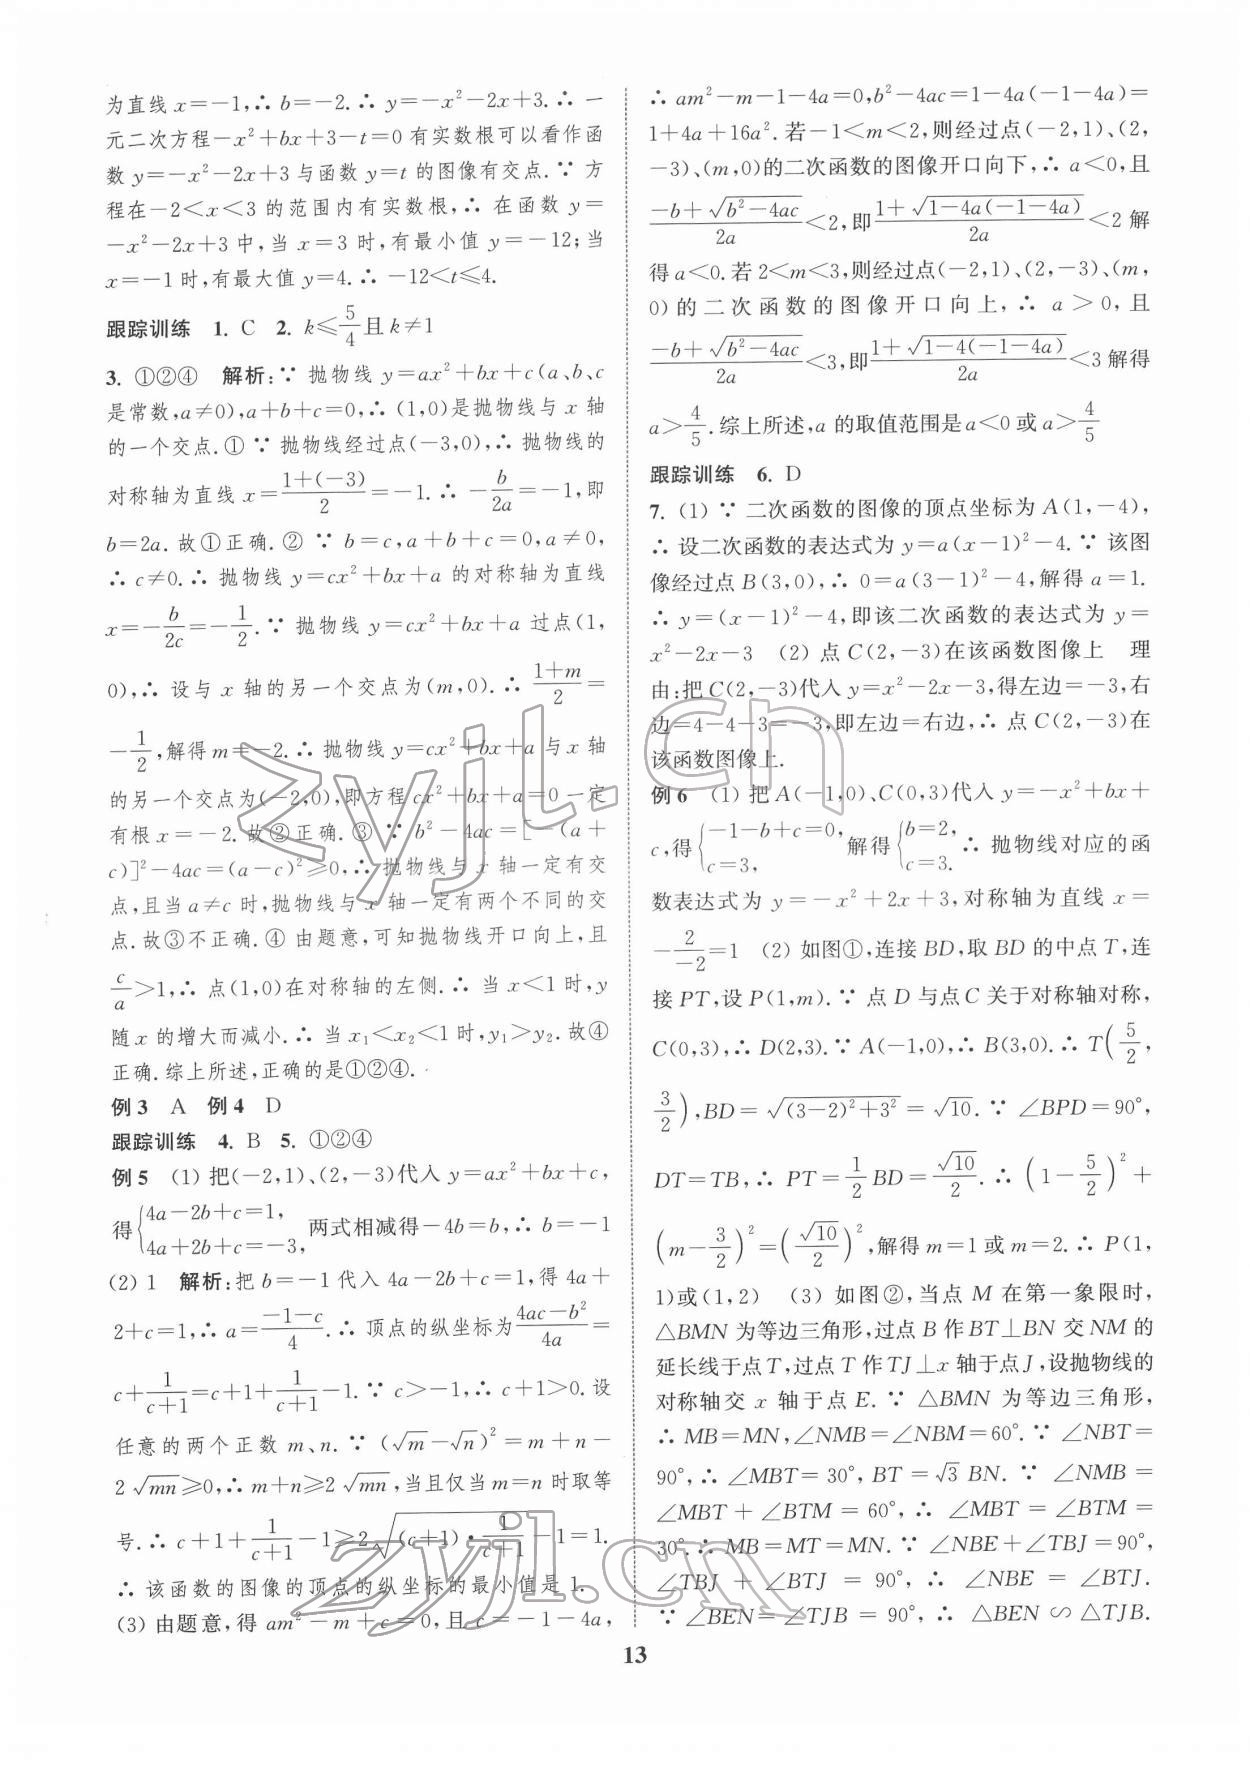 为直线 x=-1,∴ b=-2.∴ y=-x²-2x+3.∴ 一
元二次方程-x²+bx+3-t=0 有实数根可以看作函
数 y=-x²-2x+3 与函数 y=t 的图像有交点.∵ 方
程在-2<x<3 的范围内有实数根,∴ 在函数 y=
-x²-2x+3 中,当 x=3 时,有最小值 y=-12;当
x=-1 时,有最大值 y=4.∴ -12<t≤4.
跟踪训练 1. C 2. k≤5/4且 k≠1
3. ①②④ 解析:∵ 抛物线 y=ax²+bx+c(a、b、c
是常数,a≠0),a+b+c=0,∴ (1,0)是抛物线与 x 轴
的一个交点.① ∵ 抛物线经过点(-3,0),∴ 抛物线的
对称轴为直线 x=(1+(-3))/2=-1.∴ -b/2a=-1,即
b=2a.故①正确.② ∵ b=c,a+b+c=0,a≠0,
∴ c≠0.∴ 抛物线 y=cx²+bx+a 的对称轴为直线
x=-b/2c=-1/2.∵ 抛物线 y=cx²+bx+a 过点(1,
0),∴ 设与 x 轴的另一个交点为(m,0).∴ (1+m)/2=
-1/2,解得 m=-2.∴ 抛物线 y=cx²+bx+a 与 x 轴
的另一个交点为(-2,0),即方程 cx²+bx+a=0 一定
有根 x=-2.故②正确.③ ∵ b²-4ac=[-(a+
c)]²-4ac=(a-c)²≥0,∴ 抛物线与 x 轴一定有交
点,且当 a≠c 时,抛物线与 x 轴一定有两个不同的交
点.故③不正确.④ 由题意,可知抛物线开口向上,且
c/a>1,∴ 点(1,0)在对称轴的左侧.∴ 当 x<1 时,y
随 x 的增大而减小.∴ 当 x₁<x₂<1 时,y₁>y₂.故④
正确.综上所述,正确的是①②④.
例 3 A 例 4 D
跟踪训练 4. B 5. ①②④
例 5 (1) 把(-2,1)、(2,-3)代入 y=ax²+bx+c,
得{4a-2b+c=1, 4a+2b+c=-3, 两式相减得-4b=b,∴ b=-1
(2) 1 解析:把 b=-1 代入 4a-2b+c=1,得 4a+
2+c=1,∴ a=(-1-c)/4.∴ 顶点的纵坐标为(4ac-b²)/4a=
c+1/(c+1)=c+1+1/(c+1)-1.∵ c>-1,∴ c+1>0.设
任意的两个正数 m、n.∵ (√m-√n)²=m+n-
2√mn≥0,∴ m+n≥2√mn,当且仅当 m=n 时取等
号.∴ c+1+1/(c+1)-1≥2√((c+1)·1/(c+1))-1=1.
∴ 该函数的图像的顶点的纵坐标的最小值是 1.
(3) 由题意,得 am²-m+c=0,且 c=-1-4a,
∴ am²-m-1-4a=0,b²-4ac=1-4a(-1-4a)=
1+4a+16a².若-1<m<2,则经过点(-2,1)、(2,
-3)、(m,0)的二次函数的图像开口向下,∴ a<0,且
(-b+√(b²-4ac))/2a<2,即(1+√(1-4a(-1-4a)))/2a<2 解
得 a<0.若 2<m<3,则经过点(-2,1)、(2,-3)、(m,
0)的二次函数的图像开口向上,∴ a>0,且
(-b+√(b²-4ac))/2a<3,即(1+√(1-4(-1-4a)))/2a<3 解得
a>4/5.综上所述,a 的取值范围是 a<0 或 a>4/5
跟踪训练 6. D
7. (1) ∵ 二次函数的图像的顶点坐标为 A(1,-4),
∴ 设二次函数的表达式为 y=a(x-1)²-4.∵ 该图
像经过点 B(3,0),∴ 0=a(3-1)²-4,解得 a=1.
∴ y=(x-1)²-4,即该二次函数的表达式为 y=
x²-2x-3 (2) 点 C(2,-3)在该函数图像上 理
由:把 C(2,-3)代入 y=x²-2x-3,得左边=-3,右
边=4-4-3=-3,即左边=右边,∴ 点 C(2,-3)在
该函数图像上.
例 6 (1) 把 A(-1,0)、C(0,3)代入 y=-x²+bx+
c,得{-1-b+c=0, c=3, 解得{b=2, c=3. ∴ 抛物线对应的函
数表达式为 y=-x²+2x+3,对称轴为直线 x=
-2/-2=1 (2) 如图①,连接 BD,取 BD 的中点 T,连
接 PT,设 P(1,m).∵ 点 D 与点 C 关于对称轴对称,
C(0,3),∴ D(2,3).∵ A(-1,0),∴ B(3,0).∴ T(5/2,
3/2),BD=√((3-2)²+3²)=√10.∵ ∠BPD=90°,
DT=TB,∴ PT=1/2BD=√10/2.∴ (1-5/2)²+
(m-3/2)²=(√10/2)²,解得 m=1 或 m=2.∴ P(1,
1)或(1,2) (3) 如图②,当点 M 在第一象限时,
△BMN 为等边三角形,过点 B 作 BT⊥BN 交 NM 的
延长线于点 T,过点 T 作 TJ⊥x 轴于点 J,设抛物线的
对称轴交 x 轴于点 E.∵ △BMN 为等边三角形,
∴ MB=MN,∠NMB=∠NBM=60°.∵ ∠NBT=
90°,∴ ∠MBT=30°,BT=√3 BN.∵ ∠NMB=
∠MBT+∠BTM=60°,∴ ∠MBT=∠BTM=
30°.∴ MB=MT=MN.∵ ∠NBE+∠TBJ=90°,
∠TBJ+∠BTJ=90°,∴ ∠NBE=∠BTJ.
∵ ∠BEN=∠TJB=90°,∴ △BEN∽△TJB.
13
zyjl.cn
zyjl.cn